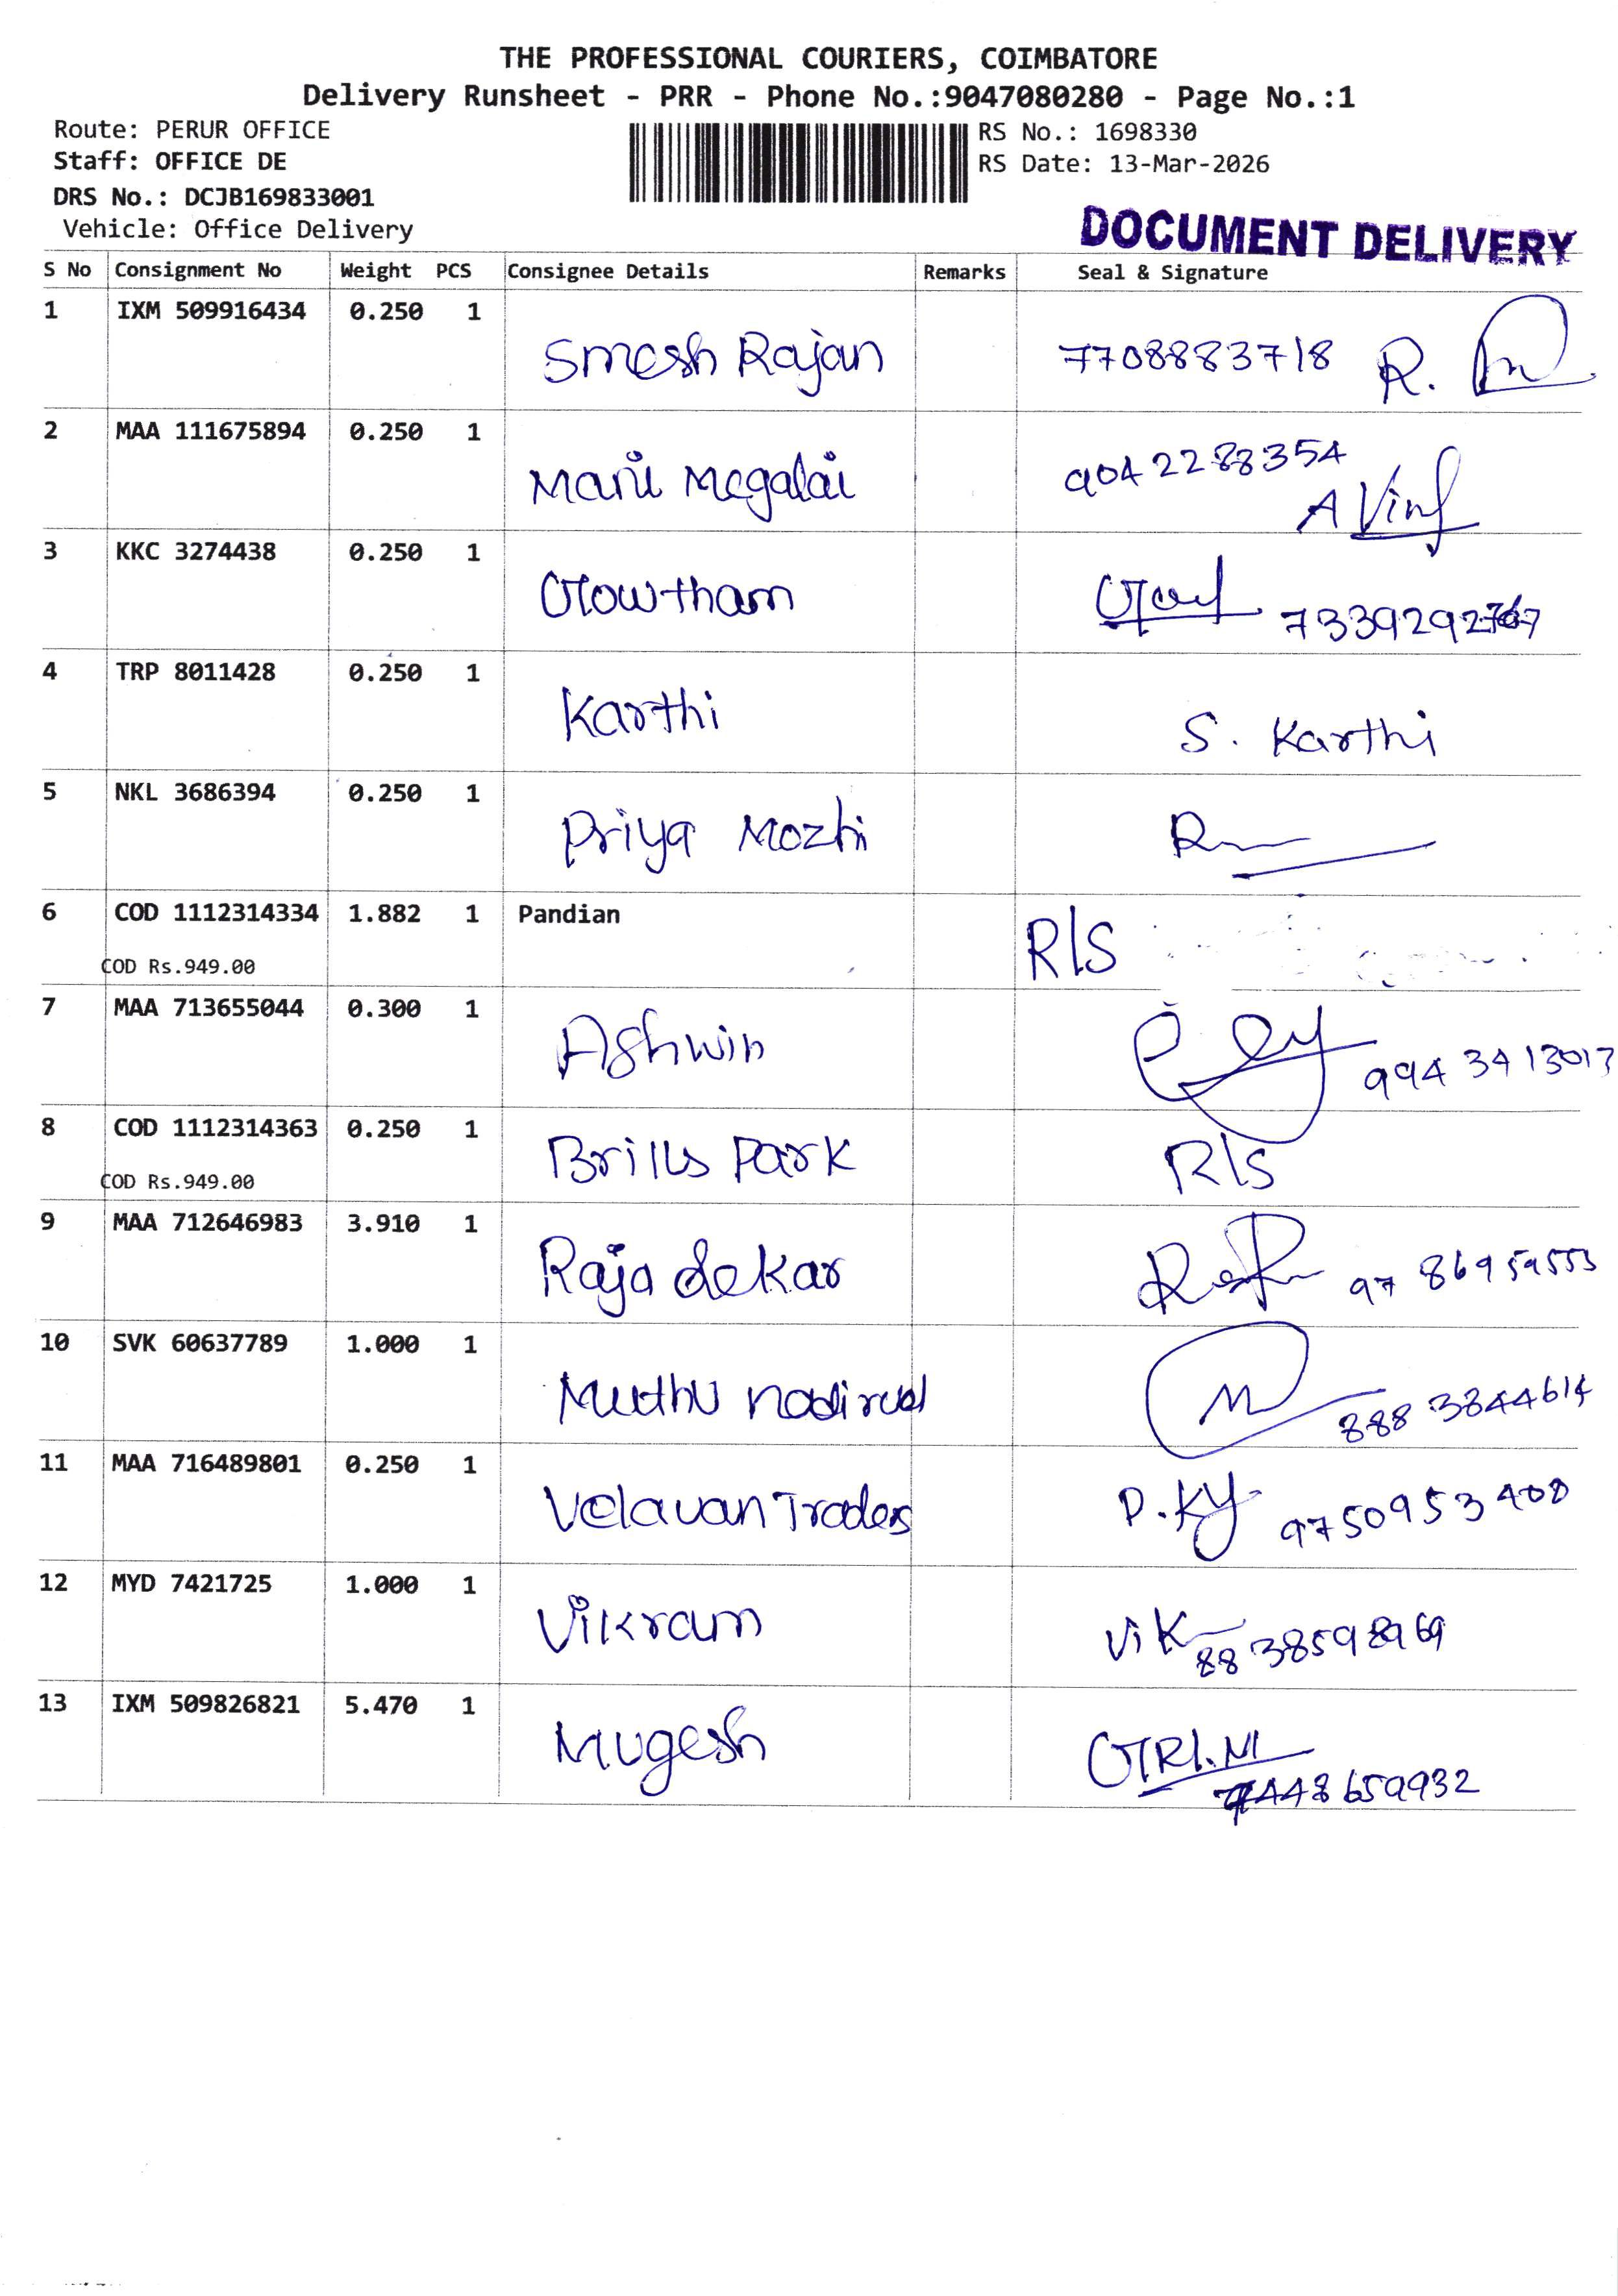 THE PROFESSIONAL COURIERS, COIMBATORE
Delivery Runsheet - PRR - Phone No.:9047080280 - Page No.:1
Route: PERUR OFFICE
RS No.: 1698330
Staff: OFFICE DE
RS Date: 13-Mar-2026
DRS No.: DCJB169833001
Vehicle: Office Delivery
DOCUMENT DELIVERY
S No Consignment No Weight PCS Consignee Details Remarks Seal & Signature
1 IXM 509916434 0.250 1
Smesh Rajan 7708883718 R.
2 MAA 111675894 0.250 1
Mani Megalai 9042288354
A Vinf
3 KKC 3274438 0.250 1
Gowtham 7339292767
4 TRP 8011428 0.250 1
Karthi S. Karthi
5 NKL 3686394 0.250 1
Priya Mozhi
6 COD 1112314334 1.882 1 Pandian R/S
COD Rs.949.00
7 MAA 713655044 0.300 1
Ashwin 9943413017
8 COD 1112314363 0.250 1
Brills Park R/S
COD Rs.949.00
9 MAA 712646983 3.910 1
Raja Sekar 9786959555
10 SVK 60637789 1.000 1
Muthu 8883844614
11 MAA 716489801 0.250 1
Velavan Trades P.Ky 9750953400
12 MYD 7421725 1.000 1
Vikram Vik 8838598969
13 IXM 509826821 5.470 1
Mugesh
9448659932